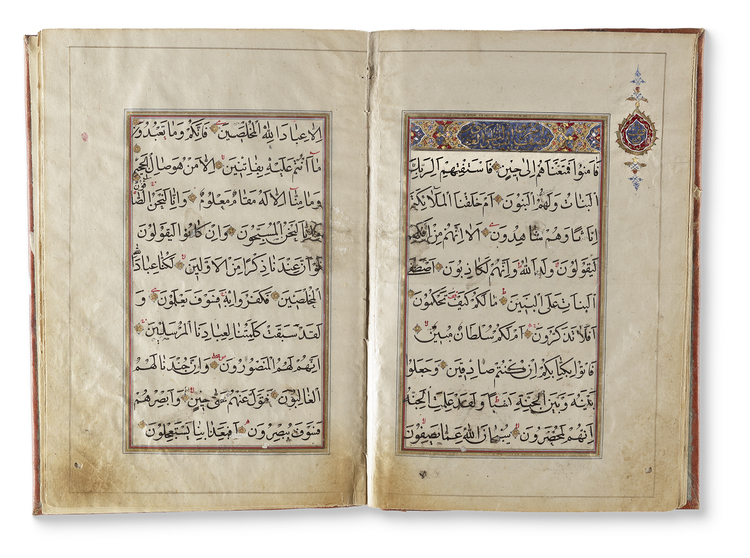 فَآمَنُوا فَمَتَّعْنَاهُمْ إِلَىٰ حِينٍ فَاسْتَفْتِهِمْ أَلِرَبِّكَ
الْبَنَاتُ وَلَهُمُ الْبَنُونَ أَمْ خَلَقْنَا الْمَلَائِكَةَ
إِنَاثًا وَهُمْ شَاهِدُونَ أَلَا إِنَّهُمْ مِنْ إِفْكِهِمْ
لَيَقُولُونَ وَلَدَ اللَّهُ وَإِنَّهُمْ لَكَاذِبُونَ أَصْطَفَى
الْبَنَاتِ عَلَى الْبَنِينَ مَا لَكُمْ كَيْفَ تَحْكُمُونَ
أَفَلَا تَذَكَّرُونَ أَمْ لَكُمْ سُلْطَانٌ مُبِينٌ
فَأْتُوا بِكِتَابِكُمْ إِنْ كُنْتُمْ صَادِقِينَ وَجَعَلُوا
بَيْنَهُ وَبَيْنَ الْجِنَّةِ نَسَبًا وَلَقَدْ عَلِمَتِ الْجِنَّةُ
إِنَّهُمْ لَمُحْضَرُونَ سُبْحَانَ اللَّهِ عَمَّا يَصِفُونَ
إِلَّا عِبَادَ اللَّهِ الْمُخْلَصِينَ فَإِنَّكُمْ وَمَا تَعْبُدُونَ
مَا أَنْتُمْ عَلَيْهِ بِفَاتِنِينَ إِلَّا مَنْ هُوَ صَالِ الْجَحِيمِ
وَمَا مِنَّا إِلَّا لَهُ مَقَامٌ مَعْلُومٌ وَإِنَّا لَنَحْنُ الصَّافُّونَ
وَإِنَّا لَنَحْنُ الْمُسَبِّحُونَ وَإِنْ كَانُوا لَيَقُولُونَ
لَوْ أَنَّ عِنْدَنَا ذِكْرًا مِنَ الْأَوَّلِينَ لَكُنَّا عِبَادَ اللَّهِ
الْمُخْلَصِينَ فَكَفَرُوا بِهِ فَسَوْفَ يَعْلَمُونَ وَ
لَقَدْ سَبَقَتْ كَلِمَتُنَا لِعِبَادِنَا الْمُرْسَلِينَ
إِنَّهُمْ لَهُمُ الْمَنْصُورُونَ وَإِنَّ جُنْدَنَا لَهُمُ
الْغَالِبُونَ فَتَوَلَّ عَنْهُمْ حَتَّىٰ حِينٍ وَأَبْصِرْهُمْ
فَسَوْفَ يُبْصِرُونَ أَفَبِعَذَابِنَا يَسْتَعْجِلُونَ